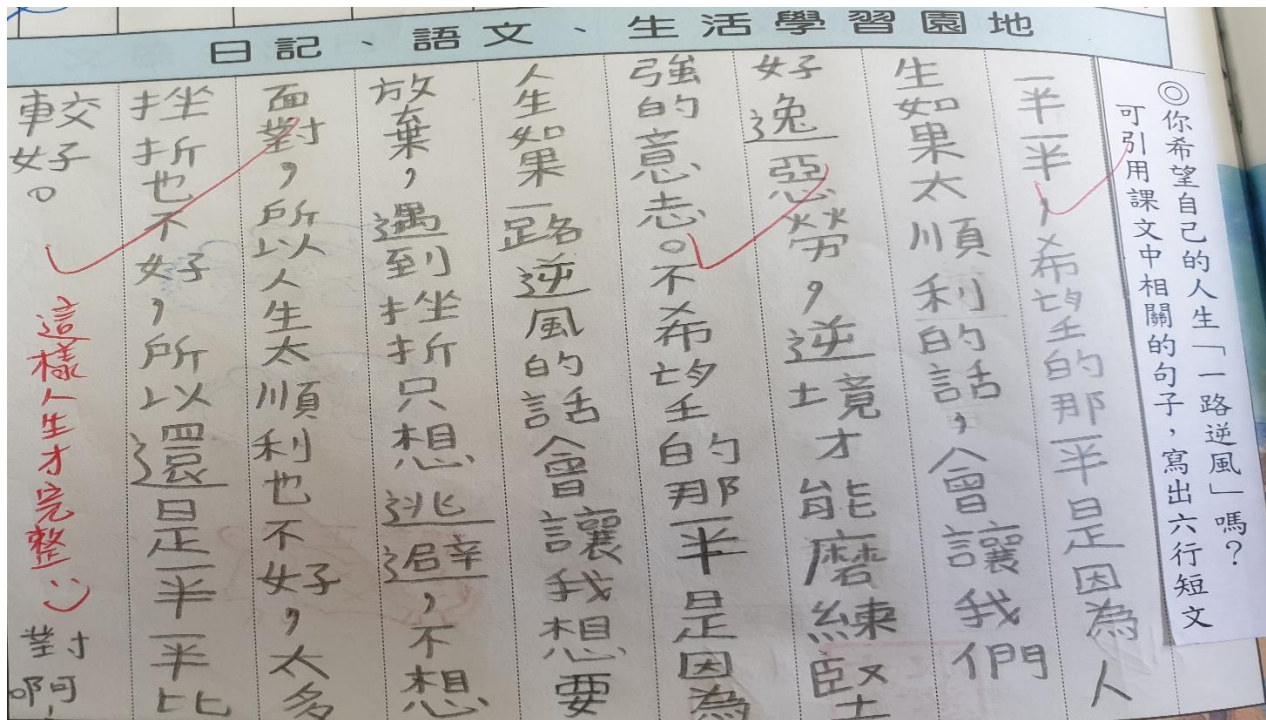 日記、語文、生活學習園地
◎你希望自己的人生「一路逆風」嗎?
可引用課文中相關的句子,寫出六行短文
一半一半,希望的那一半是因為人
生如果太順利的話,會讓我們
好逸惡勞,逆境才能磨練堅
強的意志。不希望的那一半是因為
人生如果一路逆風的話會讓我想要
放棄,遇到挫折只想逃避,不想
面對,所以人生太順利也不好,太多
挫折也不好,所以還是一半一半比
較好。
這樣人生才完整
對啊